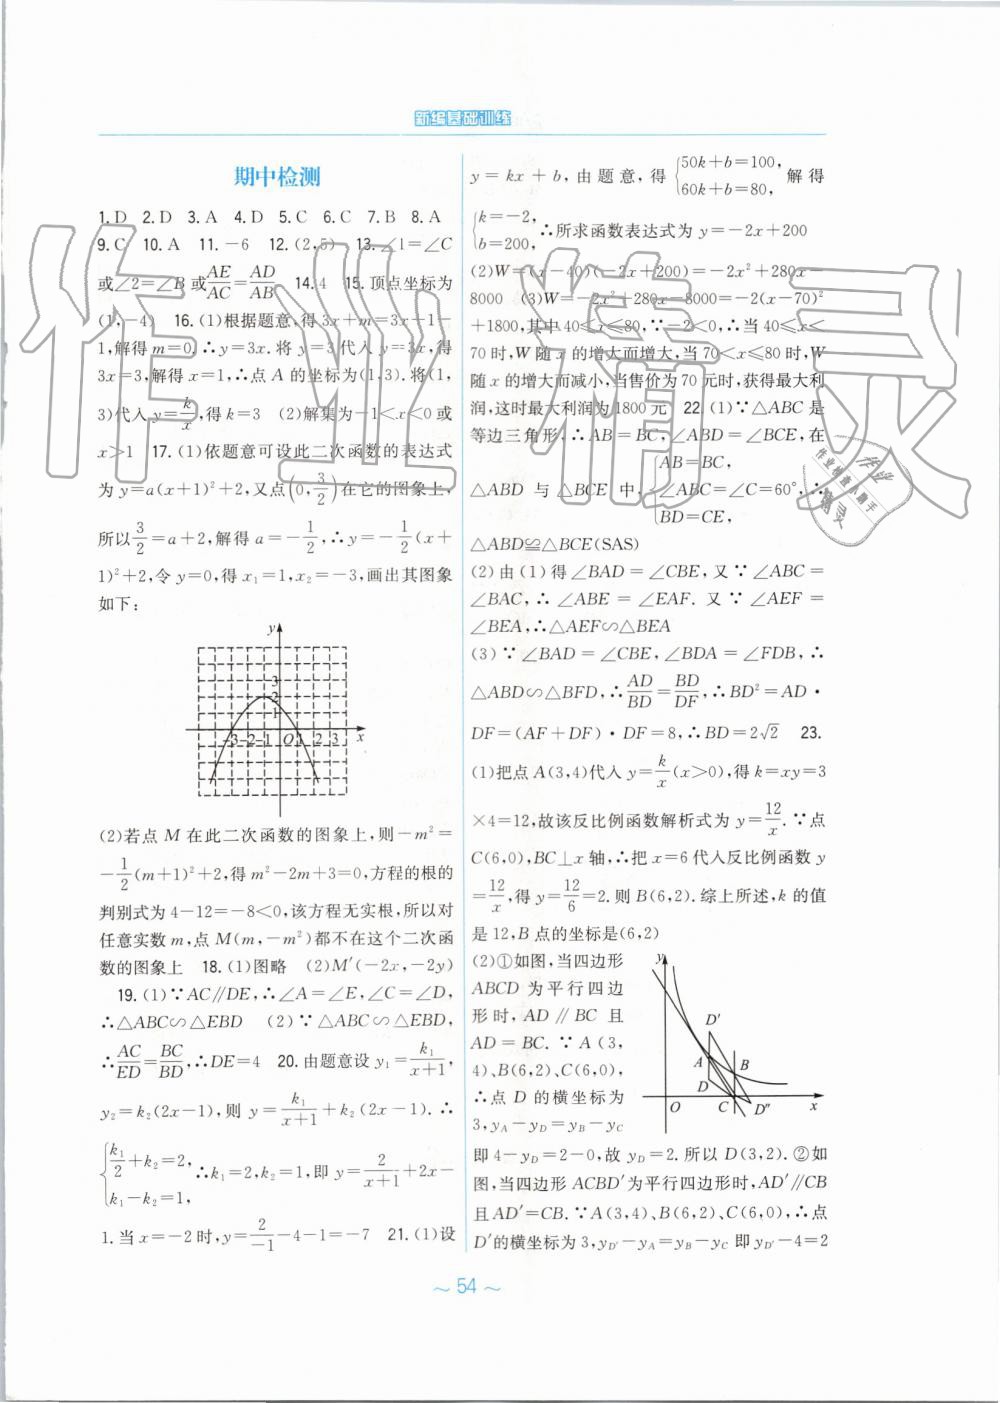 新编基础训练
期中检测
1. D 2. D 3. A 4. D 5. C 6. C 7. B 8. A
9. C 10. A 11. －6 12. (2,5) 13. ∠1＝∠C
或∠2＝∠B 或AE/AC＝AD/AB 14. 4 15. 顶点坐标为
(1,－4) 16. (1)根据题意,得 3x＋m＝3x＋1－
1,解得 m＝0. ∴y＝3x. 将 y＝3 代入 y＝3x,得
3x＝3,解得 x＝1,∴点 A 的坐标为(1,3). 将(1,
3)代入 y＝k/x,得 k＝3 (2)解集为－1＜x＜0 或
x＞1 17. (1)依题意可设此二次函数的表达式
为 y＝a(x＋1)²＋2,又点(0,3/2)在它的图象上,
所以3/2＝a＋2,解得 a＝－1/2,∴y＝－1/2(x＋
1)²＋2,令 y＝0,得 x₁＝1,x₂＝－3,画出其图象
如下:
y
3
2
1
－3－2－1 O 1 2 3 x
(2)若点 M 在此二次函数的图象上,则－m²＝
－1/2(m＋1)²＋2,得 m²－2m＋3＝0,方程的根的
判别式为 4－12＝－8＜0,该方程无实根,所以对
任意实数 m,点 M(m,－m²)都不在这个二次函
数的图象上 18. (1)图略 (2)M′(－2x,－2y)
19. (1)∵AC∥DE,∴∠A＝∠E,∠C＝∠D,
∴△ABC∽△EBD (2)∵△ABC∽△EBD,
∴AC/ED＝BC/BD,∴DE＝4 20. 由题意设 y₁＝k₁/(x＋1),
y₂＝k₂(2x－1),则 y＝k₁/(x＋1)＋k₂(2x－1). ∴
{k₁/2＋k₂＝2, k₁－k₂＝1, ∴k₁＝2,k₂＝1,即 y＝2/(x＋1)＋2x－
1. 当 x＝－2 时,y＝2/－1－4－1＝－7 21. (1)设
y＝kx＋b,由题意,得{50k＋b＝100, 60k＋b＝80, 解得
{k＝－2, b＝200, ∴所求函数表达式为 y＝－2x＋200
(2)W＝(x－40)(－2x＋200)＝－2x²＋280x－
8000 (3)W＝－2x²＋280x－8000＝－2(x－70)²
＋1800,其中 40≤x≤80,∵－2＜0,∴当 40≤x＜
70 时,W 随 x 的增大而增大,当 70＜x≤80 时,W
随 x 的增大而减小,当售价为 70 元时,获得最大利
润,这时最大利润为 1800 元 22. (1)∵△ABC 是
等边三角形,∴AB＝BC,∠ABD＝∠BCE,在
△ABD 与△BCE 中,{AB＝BC, ∠ABC＝∠C＝60°, BD＝CE, ∴
△ABD≌△BCE(SAS)
(2)由(1)得∠BAD＝∠CBE,又∵∠ABC＝
∠BAC,∴∠ABE＝∠EAF. 又∵∠AEF＝
∠BEA,∴△AEF∽△BEA
(3)∵∠BAD＝∠CBE,∠BDA＝∠FDB,∴
△ABD∽△BFD,∴AD/BD＝BD/DF,∴BD²＝AD·
DF＝(AF＋DF)·DF＝8,∴BD＝2√2 23.
(1)把点 A(3,4)代入 y＝k/x(x＞0),得 k＝xy＝3
×4＝12,故该反比例函数解析式为 y＝12/x. ∵点
C(6,0),BC⊥x 轴,∴把 x＝6 代入反比例函数 y
＝12/x,得 y＝12/6＝2. 则 B(6,2). 综上所述,k 的值
是 12,B 点的坐标是(6,2)
(2)①如图,当四边形
ABCD 为平行四边
形时,AD∥BC 且
AD＝BC. ∵A(3,
4)、B(6,2)、C(6,0),
∴点 D 的横坐标为
3,y_A－y_D＝y_B－y_C
y
D′
A
B
D
O C D″ x
即 4－y_D＝2－0,故 y_D＝2. 所以 D(3,2). ②如
图,当四边形 ACBD′为平行四边形时,AD′∥CB
且 AD′＝CB. ∵A(3,4)、B(6,2)、C(6,0),∴点
D′的横坐标为 3,y_D′－y_A＝y_B－y_C 即 y_D′－4＝2
～ 54 ～
作业精灵
作业
作业检查小助手
精灵